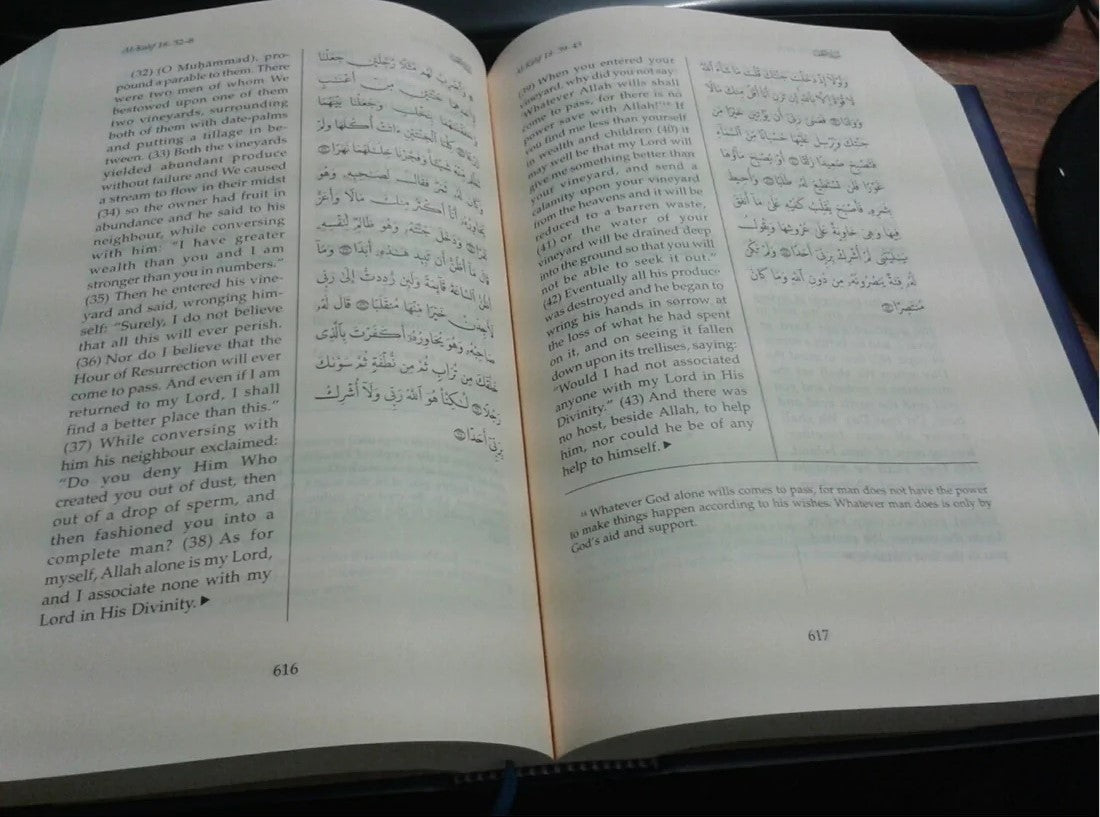 Al-Kahf 18: 32-8
(32) (O Muḥammad), pro-
pound a parable to them. There
were two men of whom We
bestowed upon one of them
two vineyards, surrounding
both of them with date-palms
and putting a tillage in be-
tween. (33) Both the vineyards
yielded abundant produce
without failure and We caused
a stream to flow in their midst
(34) so the owner had fruit in
abundance and he said to his
neighbour, while conversing
with him: "I have greater
wealth than you and I am
stronger than you in numbers."
(35) Then he entered his vine-
yard and said, wronging him-
self: "Surely, I do not believe
that all this will ever perish.
(36) Nor do I believe that the
Hour of Resurrection will ever
come to pass. And even if I am
returned to my Lord, I shall
find a better place than this."
(37) While conversing with
him his neighbour exclaimed:
"Do you deny Him Who
created you out of dust, then
out of a drop of sperm, and
then fashioned you into a
complete man? (38) As for
myself, Allah alone is my Lord,
and I associate none with my
Lord in His Divinity.►
وَٱضْرِبْ لَهُم مَّثَلًا رَّجُلَيْنِ جَعَلْنَا
لِأَحَدِهِمَا جَنَّتَيْنِ مِنْ أَعْنَـٰبٍ
وَحَفَفْنَـٰهُمَا بِنَخْلٍ وَجَعَلْنَا بَيْنَهُمَا
زَرْعًا ۝٣٢ كِلْتَا ٱلْجَنَّتَيْنِ ءَاتَتْ أُكُلَهَا وَلَمْ
تَظْلِم مِّنْهُ شَيْـًٔا وَفَجَّرْنَا خِلَـٰلَهُمَا نَهَرًا ۝٣٣
وَكَانَ لَهُۥ ثَمَرٌ فَقَالَ لِصَـٰحِبِهِۦ وَهُوَ
يُحَاوِرُهُۥٓ أَنَا۠ أَكْثَرُ مِنكَ مَالًا وَأَعَزُّ
نَفَرًا ۝٣٤ وَدَخَلَ جَنَّتَهُۥ وَهُوَ ظَالِمٌ لِّنَفْسِهِۦ
قَالَ مَآ أَظُنُّ أَن تَبِيدَ هَـٰذِهِۦٓ أَبَدًا ۝٣٥ وَمَآ
أَظُنُّ ٱلسَّاعَةَ قَآئِمَةً وَلَئِن رُّدِدتُّ إِلَىٰ رَبِّى
لَأَجِدَنَّ خَيْرًا مِّنْهَا مُنقَلَبًا ۝٣٦ قَالَ لَهُۥ
صَاحِبُهُۥ وَهُوَ يُحَاوِرُهُۥٓ أَكَفَرْتَ بِٱلَّذِى
خَلَقَكَ مِن تُرَابٍ ثُمَّ مِن نُّطْفَةٍ ثُمَّ سَوَّىٰكَ
رَجُلًا ۝٣٧ لَّـٰكِنَّا۠ هُوَ ٱللَّهُ رَبِّى وَلَآ أُشْرِكُ
بِرَبِّىٓ أَحَدًا ۝٣٨
616
Al-Kahf 18: 39-43
(39) When you entered your
vineyard, why did you not say:
'Whatever Allah wills shall
come to pass, for there is no
power save with Allah!'¹⁴ If
you find me less than yourself
in wealth and children (40) it
may well be that my Lord will
give me something better than
your vineyard, and send a
calamity upon your vineyard
from the heavens and it will be
reduced to a barren waste,
(41) or the water of your
vineyard will be drained deep
into the ground so that you will
not be able to seek it out."
(42) Eventually all his produce
was destroyed and he began to
wring his hands in sorrow at
the loss of what he had spent
on it, and on seeing it fallen
down upon its trellises, saying:
"Would I had not associated
anyone with my Lord in His
Divinity." (43) And there was
no host, beside Allah, to help
him, nor could he be of any
help to himself.►
وَلَوْلَآ إِذْ دَخَلْتَ جَنَّتَكَ قُلْتَ مَا شَآءَ ٱللَّهُ
لَا قُوَّةَ إِلَّا بِٱللَّهِ إِن تَرَنِ أَنَا۠ أَقَلَّ مِنكَ مَالًا
وَوَلَدًا ۝٣٩ فَعَسَىٰ رَبِّىٓ أَن يُؤْتِيَنِ خَيْرًا مِّن
جَنَّتِكَ وَيُرْسِلَ عَلَيْهَا حُسْبَانًا مِّنَ ٱلسَّمَآءِ
فَتُصْبِحَ صَعِيدًا زَلَقًا ۝٤٠ أَوْ يُصْبِحَ مَآؤُهَا
غَوْرًا فَلَن تَسْتَطِيعَ لَهُۥ طَلَبًا ۝٤١ وَأُحِيطَ
بِثَمَرِهِۦ فَأَصْبَحَ يُقَلِّبُ كَفَّيْهِ عَلَىٰ مَآ أَنفَقَ
فِيهَا وَهِىَ خَاوِيَةٌ عَلَىٰ عُرُوشِهَا وَيَقُولُ
يَـٰلَيْتَنِى لَمْ أُشْرِكْ بِرَبِّىٓ أَحَدًا ۝٤٢ وَلَمْ تَكُن
لَّهُۥ فِئَةٌ يَنصُرُونَهُۥ مِن دُونِ ٱللَّهِ وَمَا كَانَ
مُنتَصِرًا ۝٤٣
¹⁴ Whatever God alone wills comes to pass, for man does not have the power
to make things happen according to his wishes. Whatever man does is only by
God's aid and support.
617